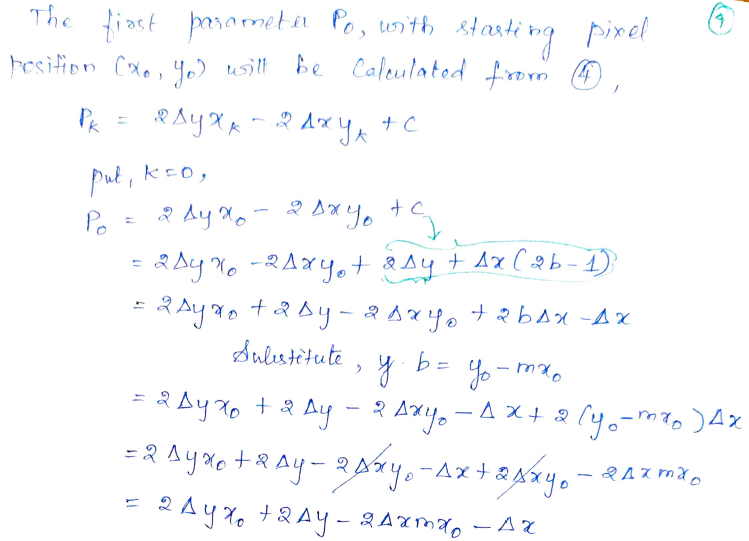 The first parameter P₀, with starting pixel ⑨
position (x₀, y₀) will be Calculated from ④,
Pₖ = 2Δyxₖ - 2Δxyₖ + C
put, k=0,
P₀ = 2Δyx₀ - 2Δxy₀ + C
= 2Δyx₀ - 2Δxy₀ + 2Δy + Δx(2b-1)
= 2Δyx₀ + 2Δy - 2Δxy₀ + 2bΔx - Δx
Substitute, y. b = y₀ - mx₀
= 2Δyx₀ + 2Δy - 2Δxy₀ - Δx + 2(y₀-mx₀)Δx
= 2Δyx₀ + 2Δy - 2Δxy₀ - Δx + 2Δxy₀ - 2Δxmx₀
= 2Δyx₀ + 2Δy - 2Δxmx₀ - Δx